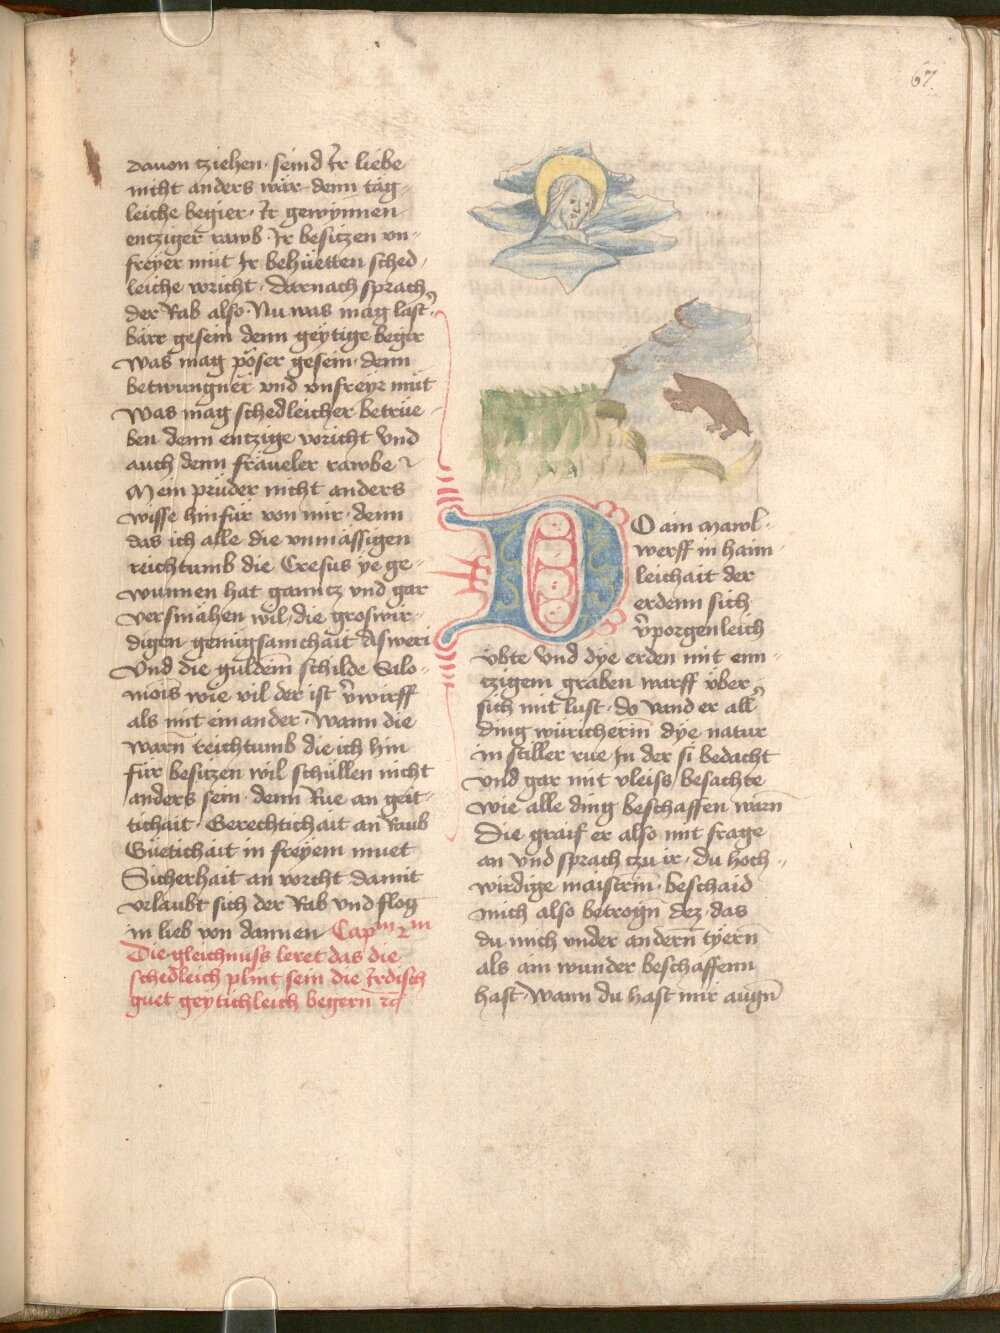 67
davon cziehen · seind Ir liebe
nicht anders wär · denn täg-
leiche begier · Ir gewynnen
encziger rawb · Ir besiczen vn-
freyer müt Ir behüetten sched-
leiche voricht · darnach sprach
der Rab also · Nu was mag last-
bärr gesein denn geytige begir
was mag pöser gesein · denn
betwungner vnd vnfreyr müt
Was mag schedleicher betrüe-
ben denn enczige voricht Vnd
auch denn fräueler rawbe
Mein prüder nicht anders
wisse hinfür von mir · denn
das ich alle die vnmässigen
reichtumb die Cresus ye ge-
wunnen hat gantz vnd gar
versmähen wil · die groswir-
digen genügsamchait Asweri
Vnd die guldein schilde Salo-
mois wie vil der ist v̄wirff
als mit einander · Wann die
warn reichtumb die ich hin
für besiczen wil schüllen nicht
anders sein · denn Rue an geit-
tichait · Gerechtichait an Raub
Güetichait in freyem muet
Sicherhait an vorcht damit
vrlaubt sich der Rab vnd flog
in lieb von dannen Capm 2m
Die gleichnuss leret das die
schedleich plint sein die Irdisch
guet geytichleich begern
DO ain Mawl-
werff in haim-
leichait der
erdenn sich
v̄porgenleich
vbte Vnd dye erden mit enn-
czigem graben warff vber
sich mit lust · do vand er all
ding würicherin dye natur
in stiller rue In der si bedacht
vnd gar mit vleiss besachte
wie alle ding beschaffen warn
Die graif er also mit frage
an vnd sprach czu ir · du hoch-
wirdige maistrin · beschaid
mich also betrogn̄ dez · das
du mich vnder andern tyern
als ain wunder beschaffenn
hast · Wann du hast mir augn̄